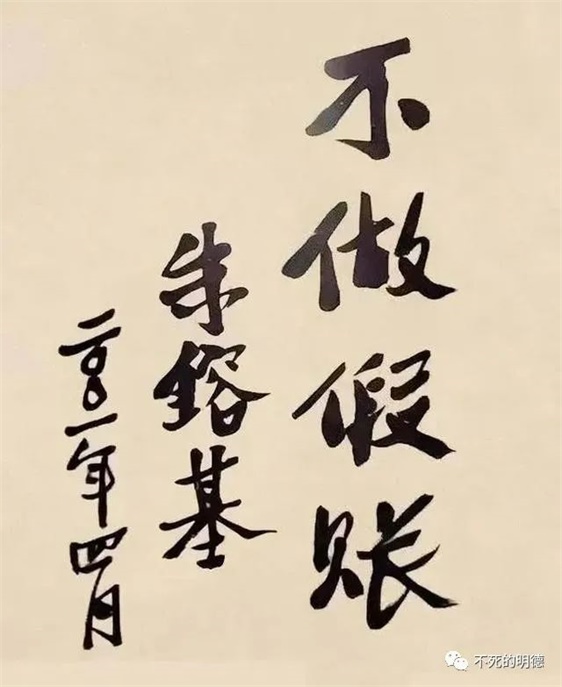 不做假账
朱镕基
二〇〇一年四月
不死的明德